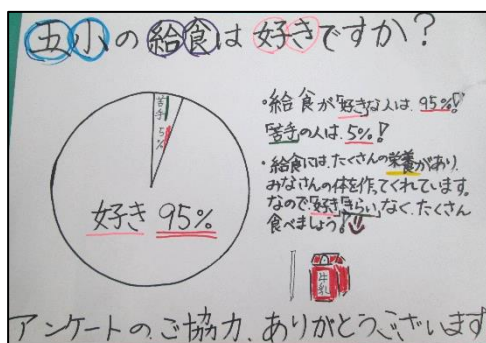 五小の給食は好きですか？
苦手
5%
好き 95%
・給食が「好き」な人は、95%！
「苦手」の人は、5%！
・給食には、たくさんの栄養があり、
みなさんの体を作ってくれています。
なので「好き」「きらい」なく、たくさん
食べましょう！
牛乳
アンケートのご協力、ありがとうございます